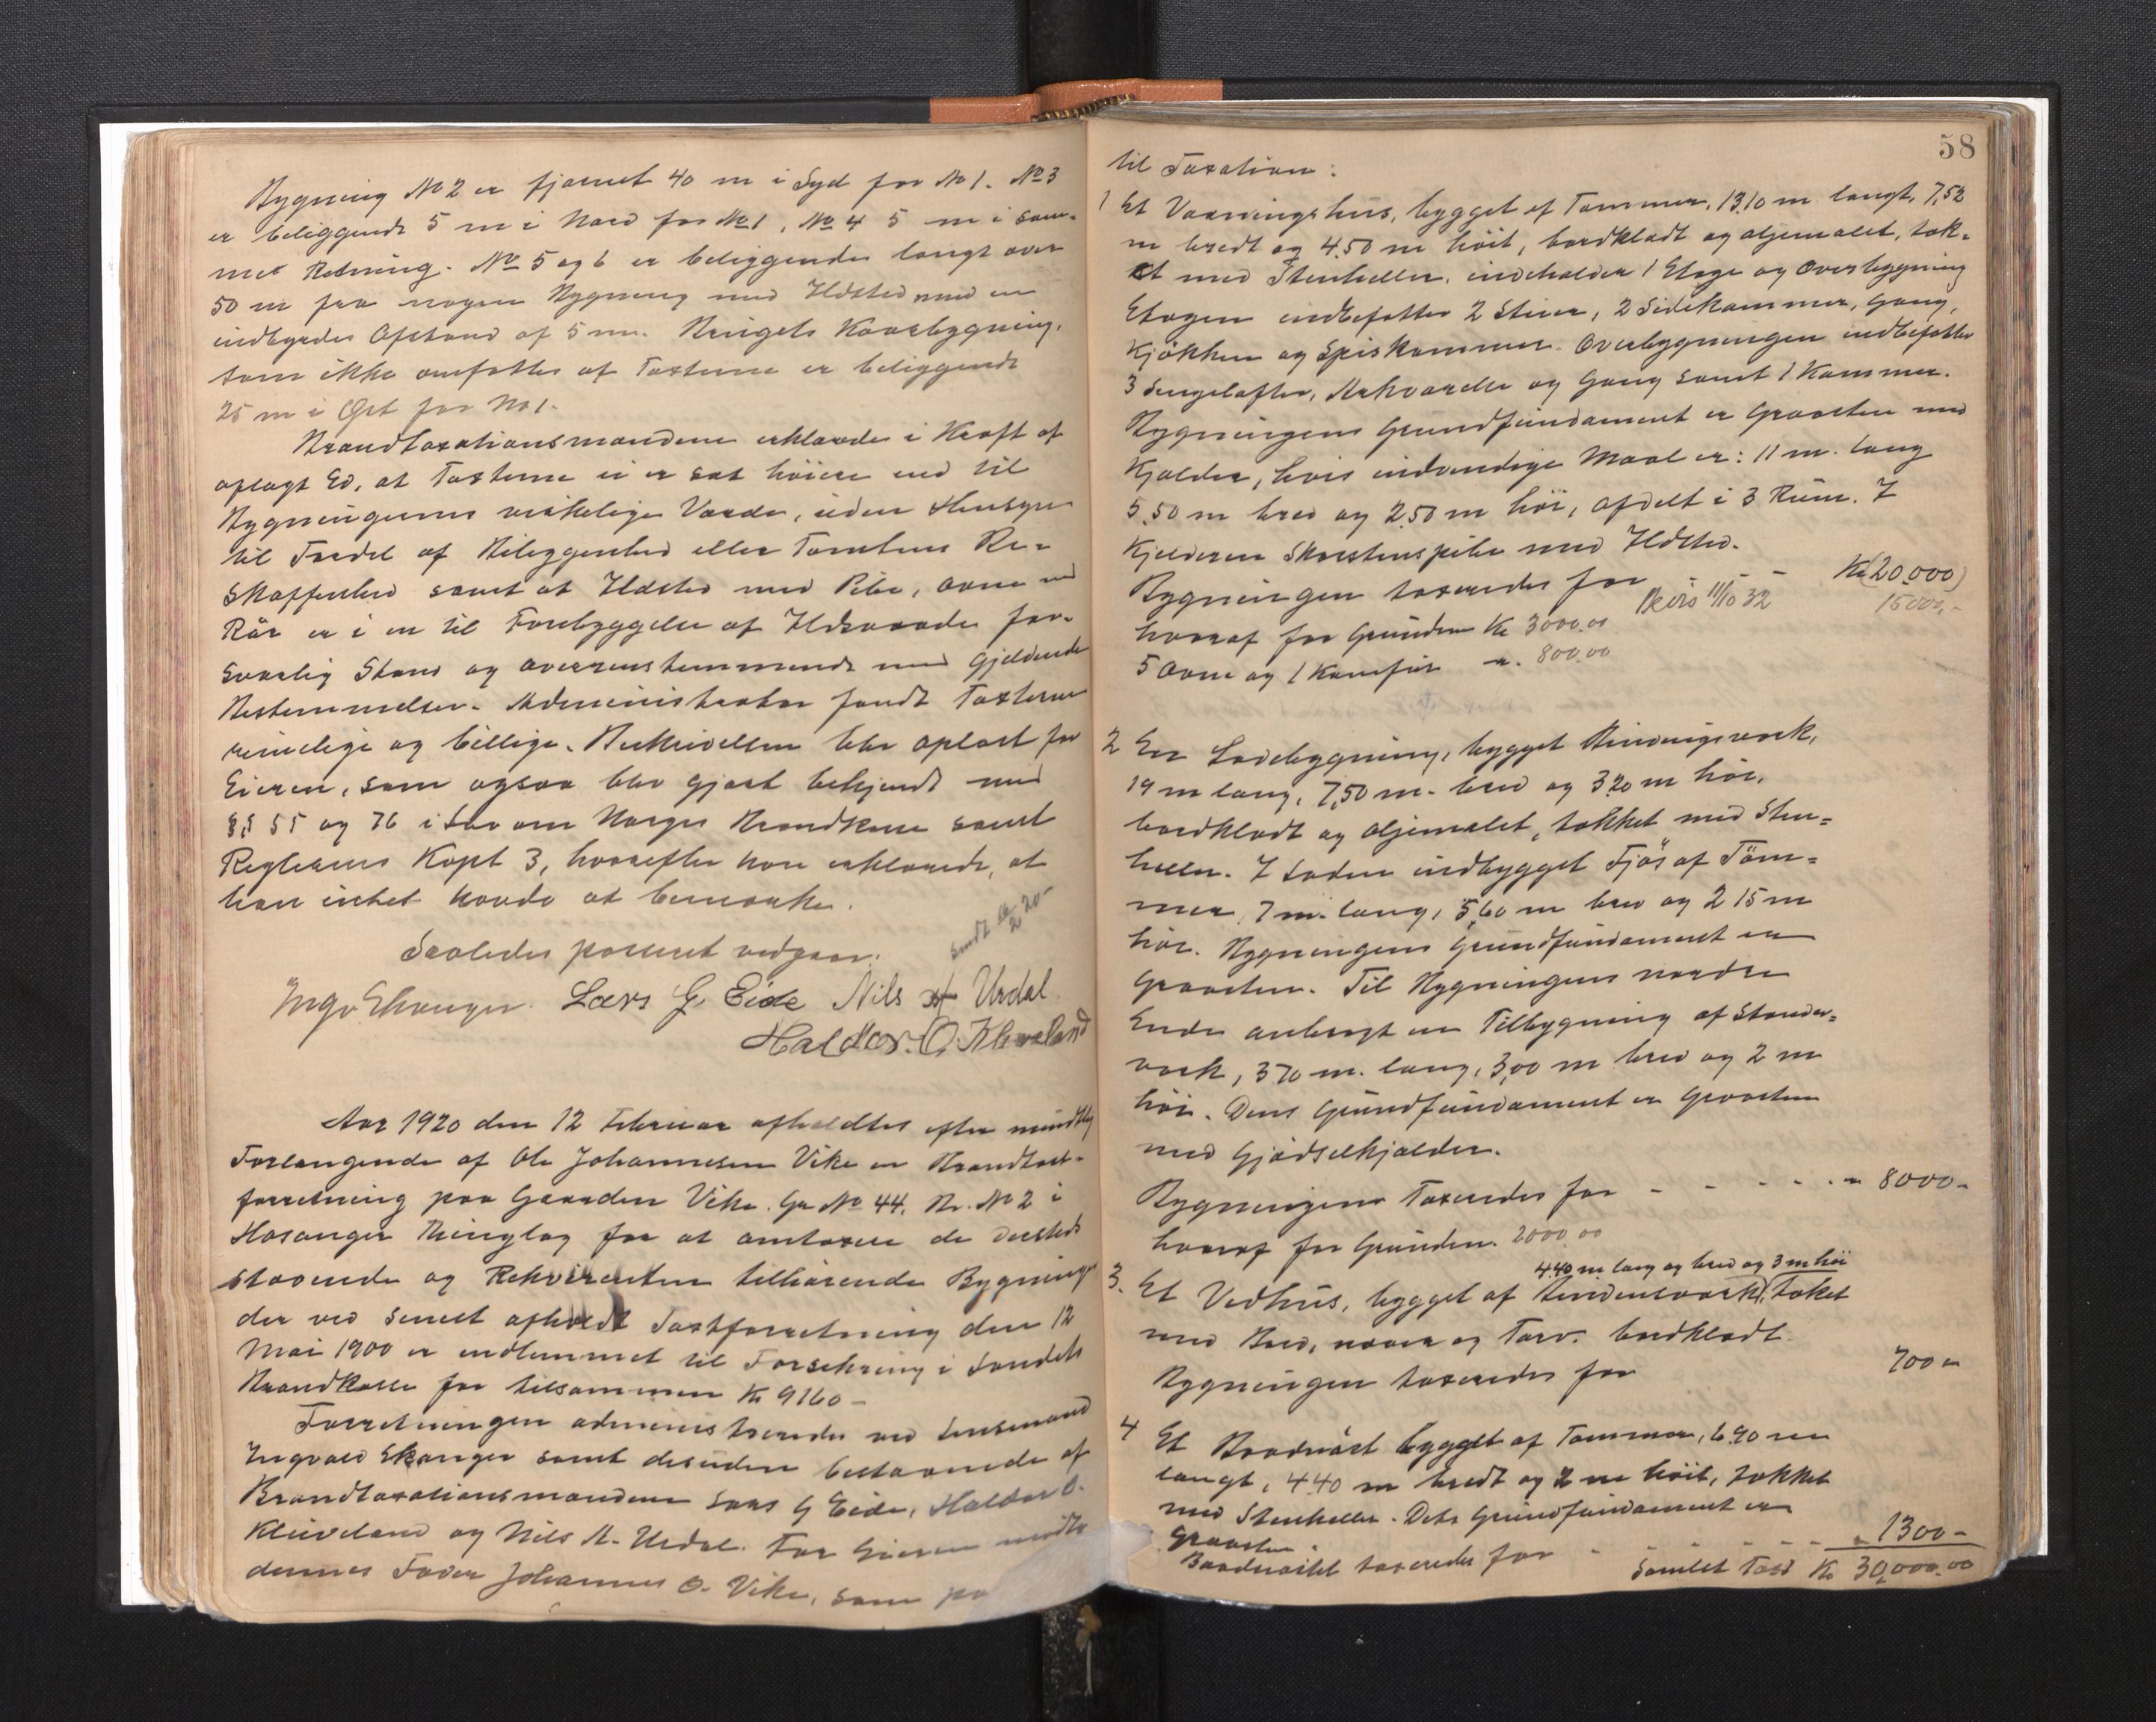 Bygning No 2 er fjernet 40 m i Syd for No 1. No 3
er beliggende 5 m i Nord for No 1, No 4 5 m i sam-
me Retning. No 5 og 6 er beliggende langt over
50 m fra nogen Bygning med Ildsted med en
indbyrdes Afstand af 5 m. Brugets Kaarbygning,
som ikke omfattes af Taxterne er beliggende
25 m i Øst for No 1.
Brandtaxationsmændene erklærede i Kraft af
aflagt Ed, at Taxterne ei er sat høiere end til
Bygningernes virkelige Værdi, uden Hensyn
til Fordel af Beliggenhed eller Tomtens Be-
skaffenhed samt at Ildsted med Pibe, ovne og
Rör er i en til Forebyggelse af Ildsvaade for-
svarlig Stand og overensstemmende med gjeldende
Bestemmelser. Administrator fandt Taxterne
rimelige og billige. Beskrivelsen blev oplæst for
Eieren, som ogsaa blev gjort bekjendt med
§§ 55 og 76 i Lov om Norges Brandkasse samt
Reglernes Kapt 3, hvorefter han erklærede, at
han intet havde at bemærke.
Sendt 20-
2
Saaledes passeret vedgaar:
Ingv Ekanger. Lars G. Eide Nils A Urdal
Haldor. O. Kleveland
Aar 1920 den 12 Februar afholdtes efter mundtlig
Forlangende af Ole Johannesen Vike en Brandtaxt-
forretning paa Gaarden Vike. Gr No 44. Br. No 2 i
Hosanger Thinglag for at omtaxere de dersteds
staaende og Rekvirenten tilhørende Bygninger
der ved senest afholdt Taxtforretning den 12
Mai 1900 er indlemmet til Forsikring i Landets
Brandkasse for tilsammen Kr 9160 -
Forretningen administreredes ved Lensmand
Ingvald Ekanger samt desuden bestaaende af
Brandtaxationsmændene Lars G Eide, Haldor O.
Kleiveland og Nils A. Urdal. For Eieren mødte
dennes Fader Johannes O. Vike, som pa
58
til Taxation:
1 Et Vaaningshus, bygget af Tømmer, 13.10 m langt, 7,52
m bredt og 4.50 m höit, bordklædt og oljemalet, tæk-
et med Stenheller, indeholder 1 Etage og Overbygning
Etagen indbefatter 2 Stuer, 2 Sidekammer, Gang,
Kjökken og Spiskammer. Overbygningen indbefatter
3 Sengelofter, Arkværelse og Gang samt 1 Kammer.
Bygningens Grundfundament er Graasten med
Kjælder, hvis indvendige Maal er: 11 m. lang
5.50 m bred og 2.50 m höi, afdelt i 3 Rum. I
Kjelderen Skorstenspibe med Ildsted.
Bygningen taxeredes for - - - Kr (20,000)
11/10 32 15000,-
hvoraf for Grunden Kr 3000.00
5 Ovne og 1 Komfür " 800.00
2 En Ladebygning, bygget Bindingsværk,
19 m lang, 7,50 m. bred og 3.20 m höi,
bordklædt og oljemalet, tækket med Sten-
heller. I Laden indbygget Fjös af Töm-
mer, 7 m. lang, 5,60 m bred og 2 15 m
höi. Bygningens Grundfundament er
Graasten. Til Bygningens nordre
Ende anbragt en Tilbygning af Stander-
værk, 3 70 m. lang, 3,00 m bred og 2 m
höi. Dens Grundfundament er Graasten
med Gjødselkjælder.
Bygningen Taxeredes for - - - - - " 8000-
hvoraf for Grunden. 2000.00
4.40 m lang og bred og 3 m höi
3. Et Vedhüs, bygget af Bindingsværk, tæket
med Bord, næver og Torv. bordklædt.
Bygningen taxeredes for 700 "
4 Et Baadnöst bygget af Tømmer, 6.90 m
langt, 4.40 m bredt og 2 m höit, tækket
med Stenheller. Dets Grundfundament er
Graasten.
Baadnöstet taxeredes for - - - - " 1300-
Samlet Taxt Kr 30,000.00